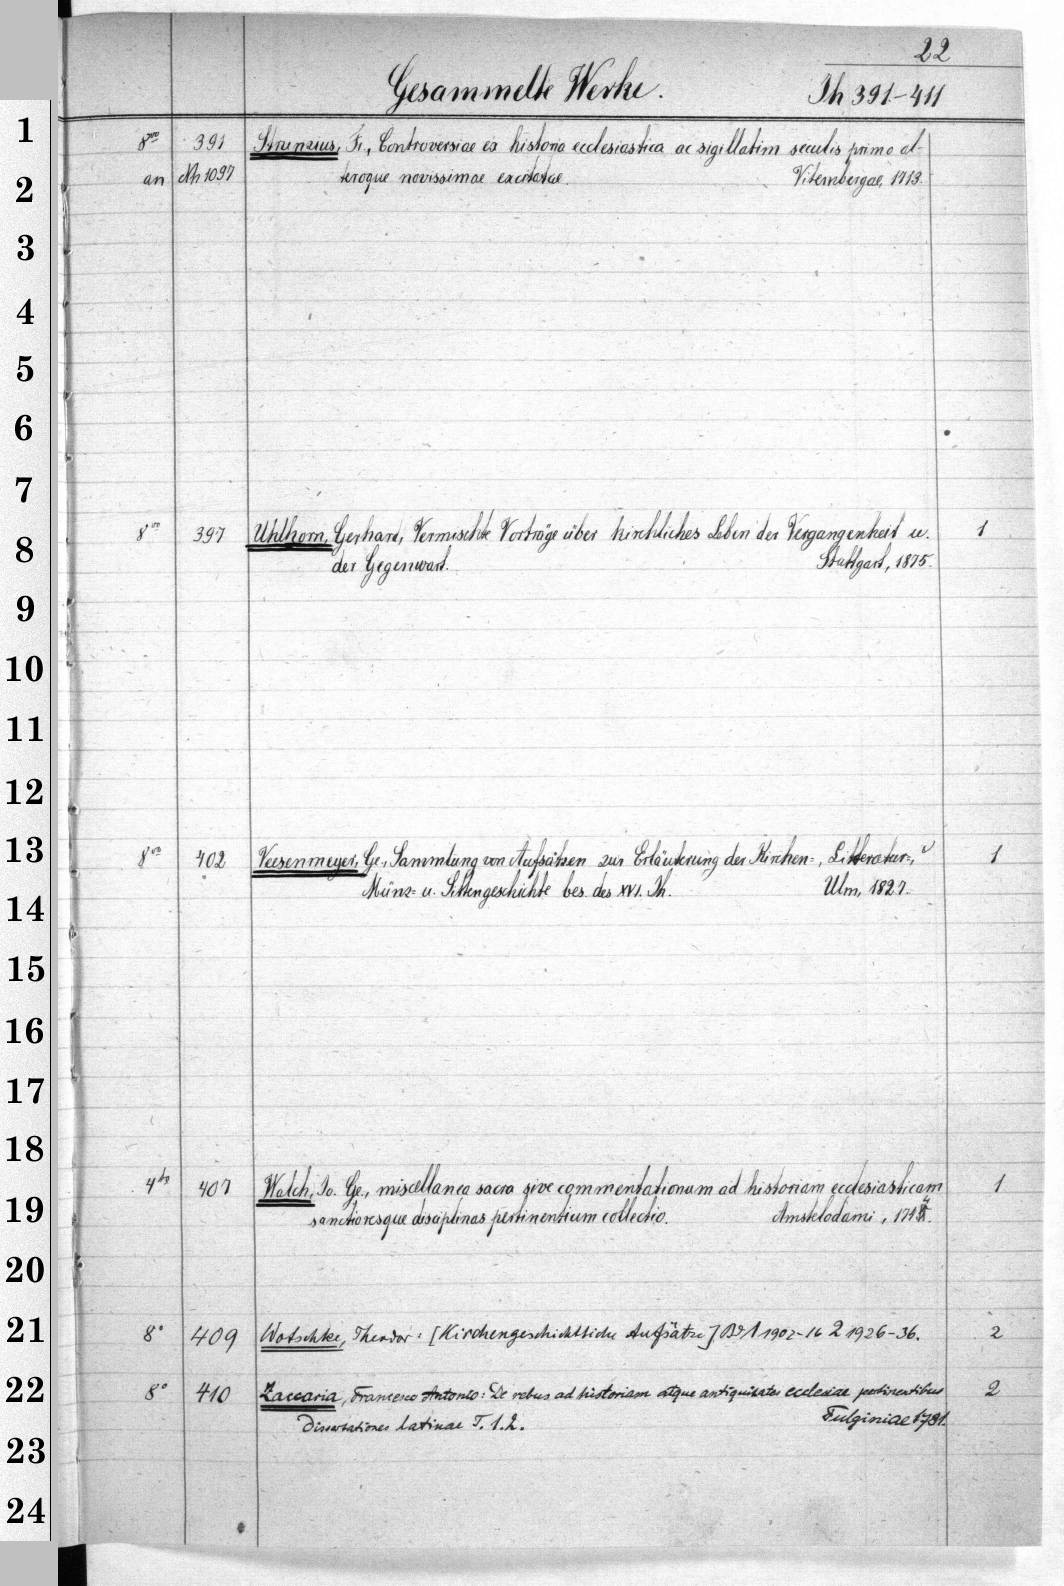 22
Gesammelte Werke. Th 391-411
1
8vo 391 Strunzius, Fr., Controversiae ex historia ecclesiastica ac sigillatim seculis primo al-
2
an Nh 1097 teroque novissimae excitatae. Vitembergae, 1713.
3
4
5
6
7
8vo 397 Uhlhorn, Gerhard, Vermischte Vorträge über kirchliches Leben der Vergangenheit u. 1
8
der Gegenwart. Stuttgart, 1875.
9
10
11
12
13
8vo 402 Veesenmeyer, Ge., Sammlung von Aufsätzen zur Erläuterung der Kirchen=, Litteratur=, 1
Münz= u. Sittengeschichte bes. des XVI. Jh. Ulm, 1827.
14
15
16
17
18
4to 407 Walch, Jo. Ge., miscellanea sacra sive commentationum ad historiam ecclesiasticam 1
19
sanctioresque disciplinas pertinentium collectio. Amstelodami,
20
21
8° 409 Wotschke, Theodor: [Kirchengeschichtliche Aufsätze] Bd. 1 1902-16 2 1926-36. 2
22
8° 410 Zaccaria, Francesco Antonio: De rebus ad historiam atque antiquitates ecclesiae pertinentibus 2
Dissertationes latinae T. 1.2. Fulginiae 1781.
23
24